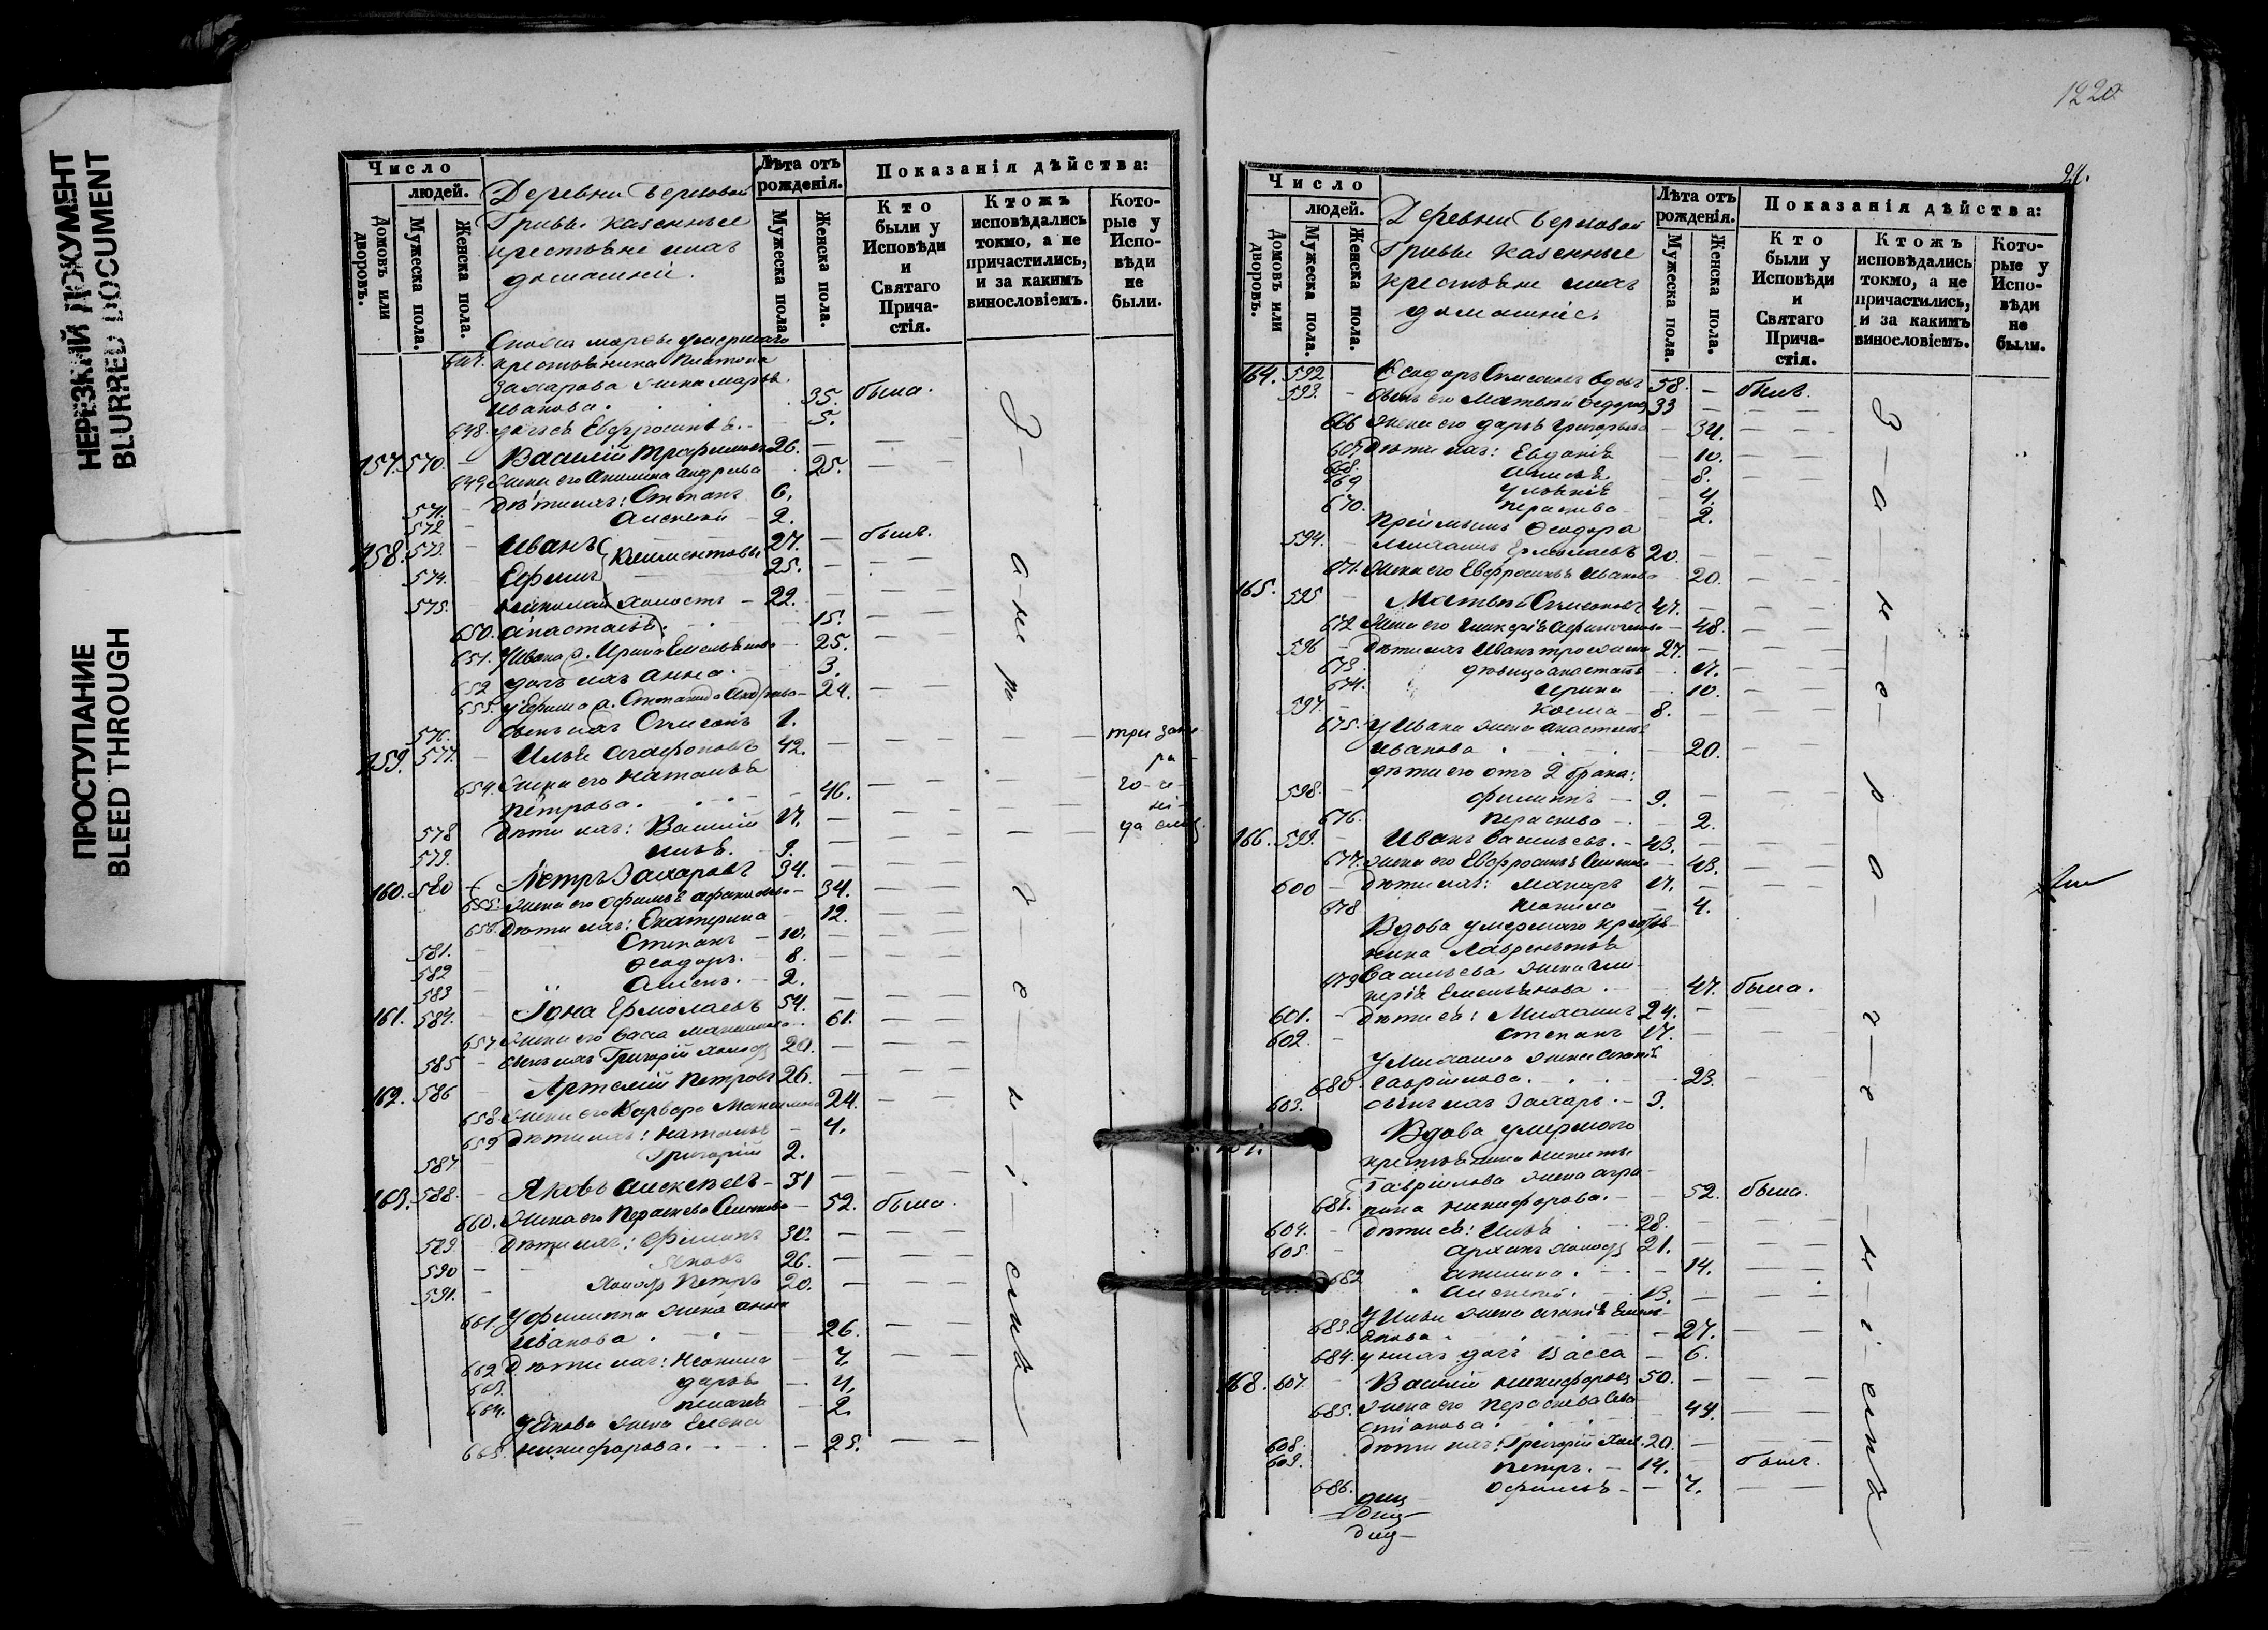 НЕРЕЗКИЙ ДОКУМЕНТ
BLURRED DOCUMENT
ПРОСТУПАНИЕ
BLEED THROUGH
Число
людей.
Домовъ или дворовъ.
Мужеска пола.
Женска пола.
Деревни Берновой
Гривы казенные
крестьяне и ихъ
домашніе.
Лѣта отъ рожденія.
Мужеска пола.
Женска пола.
Показанія дѣйства:
Кто были у Исповѣди и Святаго Причастія.
Ктожъ исповѣдались токмо, а не причастились, и за какимъ винословіемъ.
Которые у Исповѣди не были.
умершаго
647. крестьянина Платона
Захарова жена Марья
Иванова. 35. была.
648. дочь ея Евфросинія 5.
157. 570. Василій Трофимовъ 26.
649 жена его Акилина Андреева 25.
571. дѣти ихъ: Степанъ 6.
572 Алексей 2.
158. 573. Иванъ Климентовы 27. былъ.
574. Ефимъ 25.
575. Николай холостъ 22.
650. Анастасія 15.
651. У Ивана ж. Ирина Емельянова 25.
652 дочь ихъ Анна 3.
653. у Ефима ж. Степанида 24.
576. сынъ ихъ Симеонъ 1.
159. 577. Илья Агафоновъ 42.
654. жена его Наталья
Петрова. 46.
578 дѣти ихъ: Василій 17.
579. Илья. 9.
160. 580 Петръ Захаровъ 34.
655. жена его Офимья 34.
656. дѣти ихъ: Екатерина 12.
581. Степанъ 10.
582 Ѳеодоръ. 8.
583 2.
161. 584. Іона Ермолаевъ 54.
657 жена его Васса 61.
585 сынъ ихъ Григорій холос 20.
162. 586 Артемій Петровъ 26.
658 жена его Варвара Максимова 24.
659 дѣти ихъ: Наталья 4.
587 Григорій 2.
163. 588. Яковъ Алексѣевъ 51
660. жена его Параскева Симеонова 52. была.
589. дѣти ихъ: Филипъ 30.
590 Яковъ 26.
591. холос Петръ 20.
661. У Филиппа жена Анна
Иванова 26.
662 дѣти ихъ: Неонила 7
663. Дарья 4.
664. Пелагія 2.
У Якова жена Елена
665. Никифорова. 25.
1220
21.
Число
людей.
Домовъ или дворовъ.
Мужеска пола.
Женска пола.
Деревни Берновой
Гривы казенные
крестьяне и ихъ
домашніе.
Лѣта отъ рожденія.
Мужеска пола.
Женска пола.
Показанія дѣйства:
Кто были у Исповѣди и Святаго Причастія.
Ктожъ исповѣдались токмо, а не причастились, и за какимъ винословіемъ.
Которые у Исповѣди не были.
164. 592 Ѳеодоръ Симеоновъ вдовъ 58. былъ.
593. сынъ его Матвѣй Ѳедоров 33
666 жена его Дарья Григорьева 34.
667. дѣти ихъ: Евдокія 10.
668. 8.
669 Ульянія 4.
670. Параскева 2.
Пріемышъ Ѳеодора
594. Михаилъ Ермолаевъ 20.
671. жена его Евфросинья Иванова 20.
165. 595 Матвѣй Симеоновъ 47.
672 жена его Гликерія 48.
596 дѣти ихъ Иванъ 27.
673. дѣвица Анастасія 17.
674. Ирина 10.
597. Косма 8.
675. У Ивана жена Анастасія
Иванова 20.
дѣти его отъ 2 брака:
598. Филиппъ 9.
676. Параскева 2.
166. 599. Иванъ Васильевъ. 43.
677. жена его Евфросинья 43.
600 дѣти ихъ: Макаръ 17.
678 Неонила 4.
Вдова умершаго кресть-
янина Лаврентія
679 Васильева жена Гли-
керія Емельянова 47. была.
601. дѣти ея: Михаилъ 24.
602. Степанъ 17.
У Михаила жена Агапія
680. Гавриилова. 23.
603. сынъ ихъ Захаръ. 3.
Вдова умершаго
крестьянина Никиты
Гавриилова жена Агра-
681. пина Никифорова. 52. была.
604. дѣти ея: Илья 28.
605. Архипъ холос 21.
682 Акилина 14.
Алексей. 13.
У Ильи жена Агапія Емель-
683. янова 27.
684. у нихъ дочь Васса 6.
168. 607. Василій Никифоровъ 50.
685. жена его Параскева Сева-
стіанова 44.
608. дѣти ихъ: Григорій Хол. 20.
609. Петръ. 14. былъ.
686. Офимья 7.